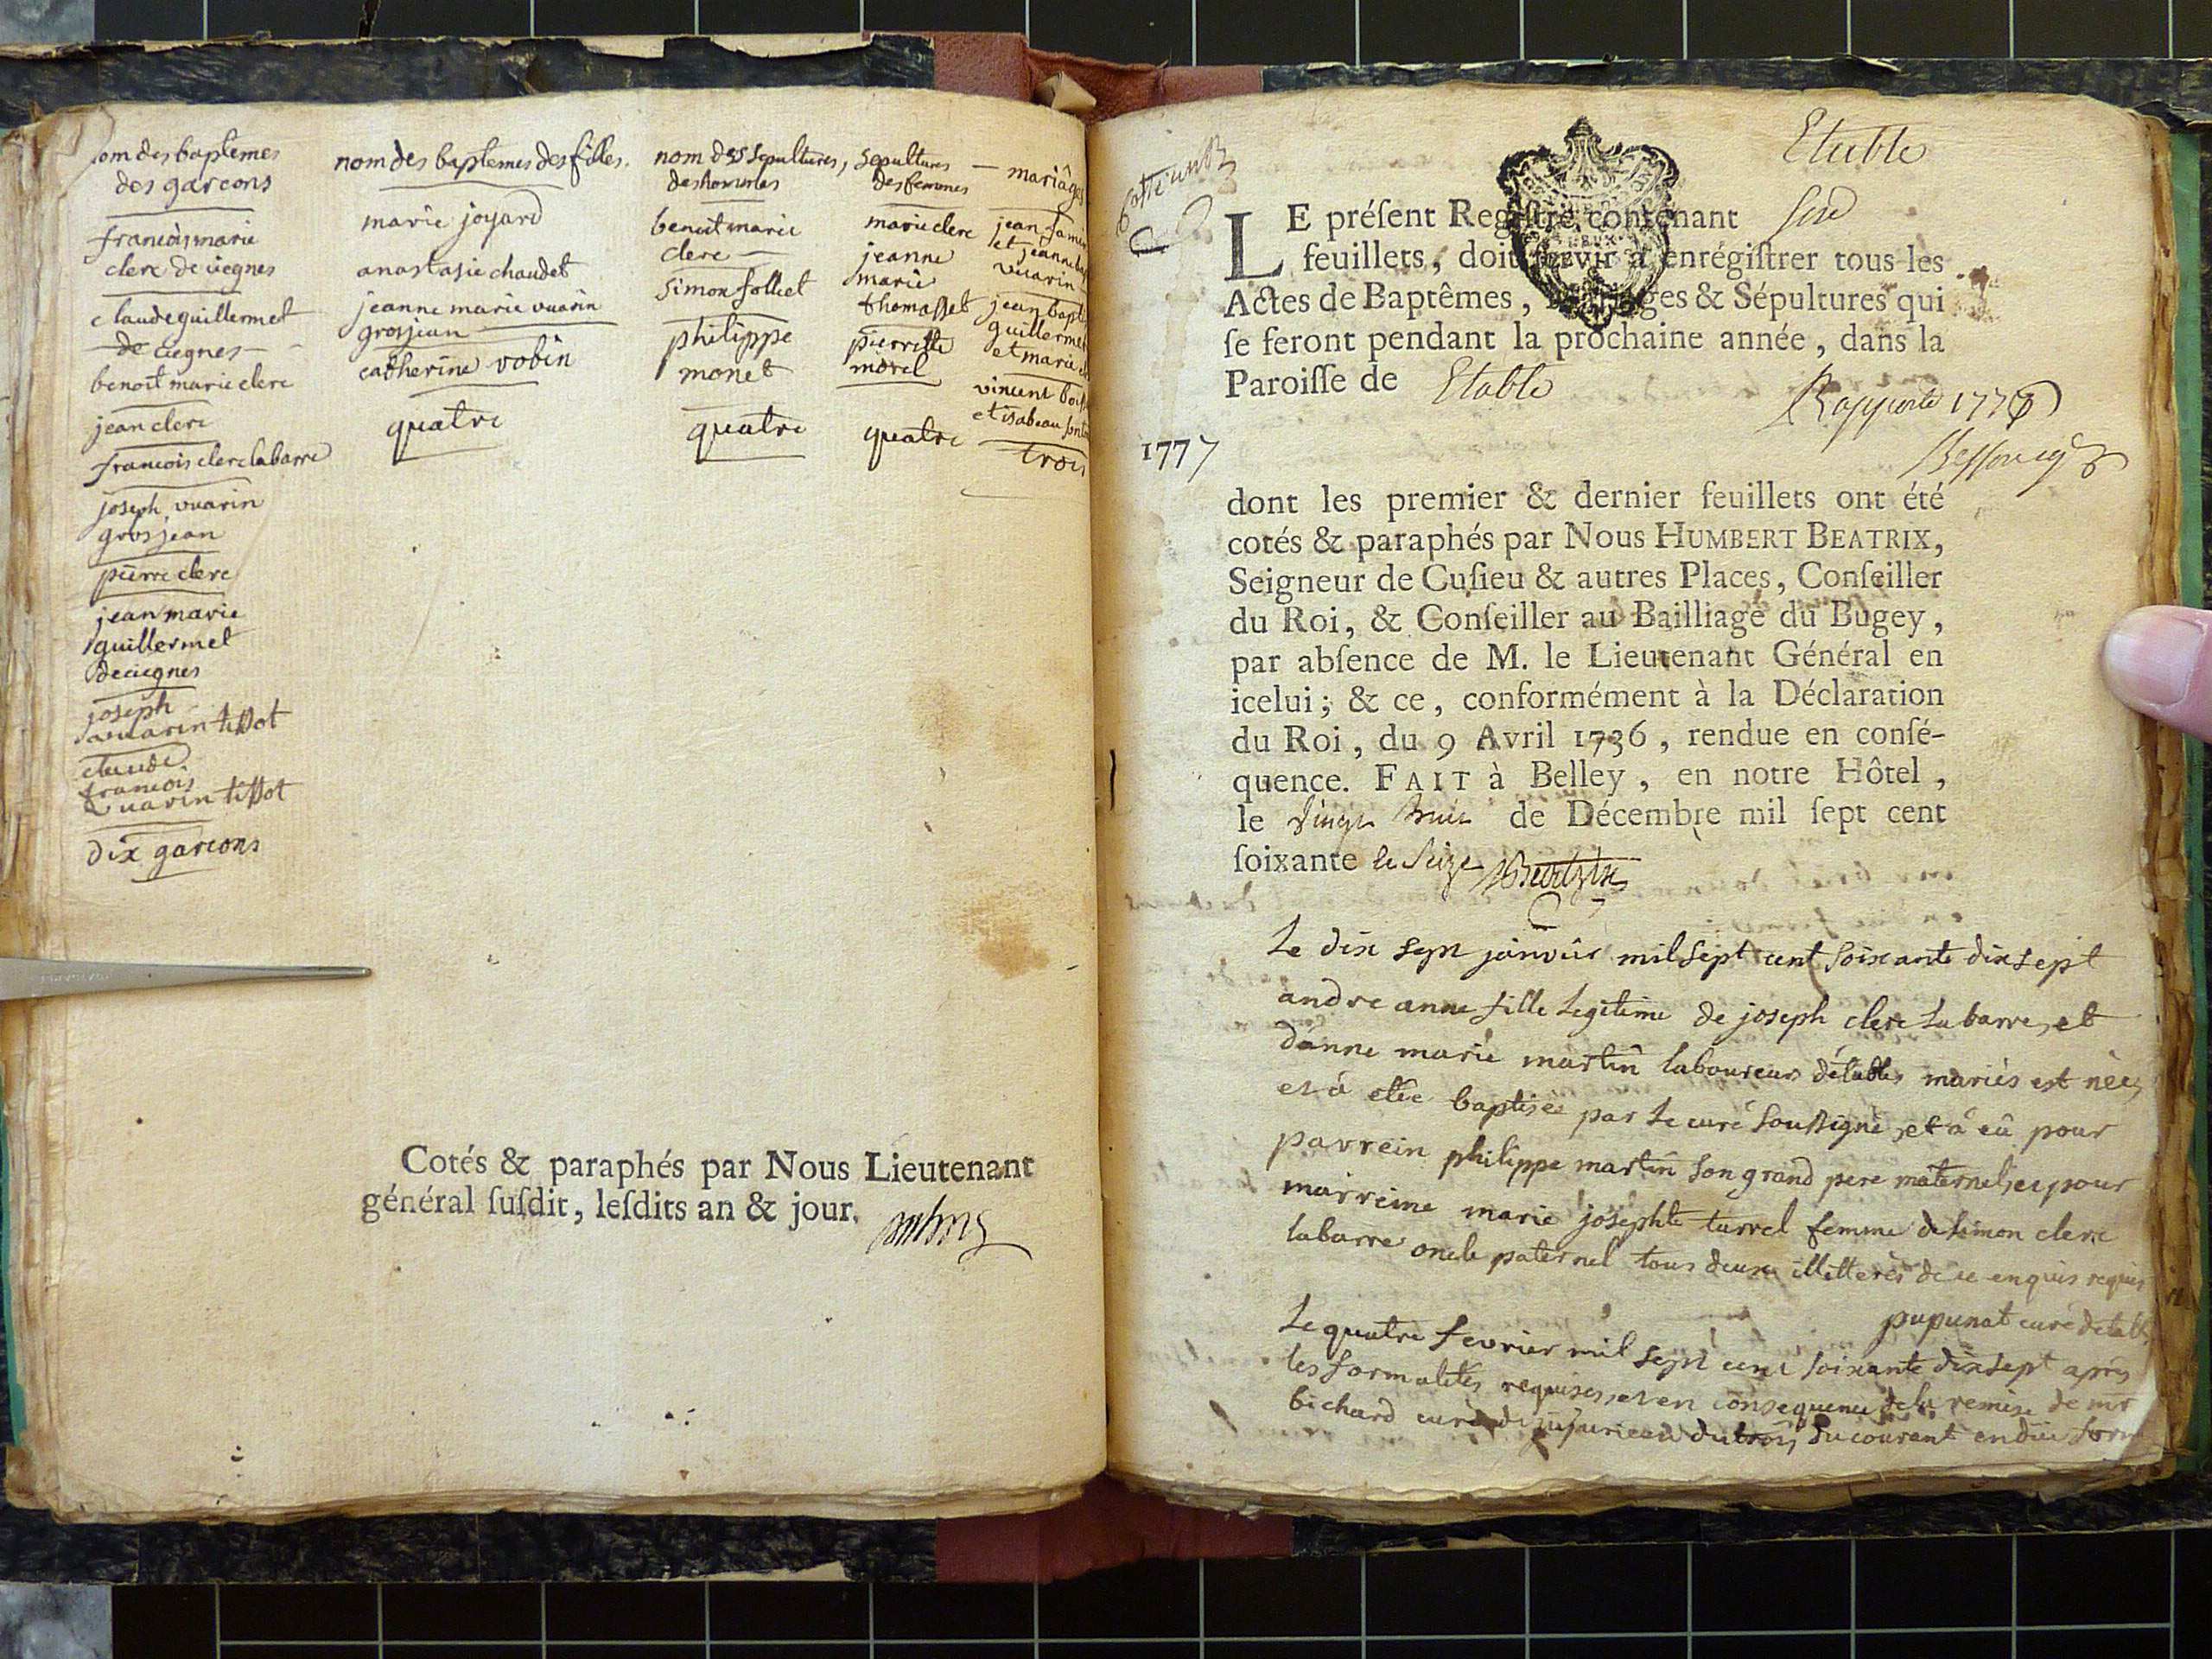 nom des baptemes
des garcons
francois marie
clerc de ciegnes
claude guillermet
de ciegnes
benoit marie clerc
jean clerc
francois clerc labarre
joseph vuarin
grosjean
pierre clerc
jean marie
guillermet
deciegnes
joseph
vuarin tissot
claude
francois
vuarin tissot
dix garcons
nom des baptemes des filles.
marie joyard
anastasie chaudet
jeanne marie vuarin
grosjean
catherine robin
quatre
nom des sepultures,
des hommes
benoit marie
clerc
simon folliet
philippe
monet
quatre
sepultures
des femmes
marie clerc
jeanne
marie
thomasset
pierrette
morel
quatre
mariâges
jean
et jeanne
vuarin
jean bapt
guillermet
et marie
vincent
et isabeau
trois
Cotés & paraphés par Nous Lieutenant
général ſuſdit, leſdits an & jour.
Etable
LE préſent Regiſtre contenant
feuillets, doit ſervir à enrégiſtrer tous les
Actes de Baptêmes, Mariages & Sépultures qui
ſe feront pendant la prochaine année, dans la
Paroiſſe de Etable
Rapporté
1777
dont les premier & dernier feuillets ont été
cotés & paraphés par Nous HUMBERT BEATRIX,
Seigneur de Cuſieu & autres Places, Conſeiller
du Roi, & Conſeiller au Bailliage du Bugey,
par abſence de M. le Lieutenant Général en
icelui; & ce, conformément à la Déclaration
du Roi, du 9 Avril 1736, rendue en conſé-
quence. FAIT à Belley, en notre Hôtel,
le vingt de Décembre mil ſept cent
ſoixante & seize Beatrix
Le dix sept janvier mil sept cent soixante dix sept
andre anne fille legitime de joseph clerc labarre, et
d'anne marie martin laboureurs d'étables mariés est née,
et â etée baptisée par le curé soussigné, et â eû pour
parrein philippe martin son grand pere maternel, et pour
marreine marie josephte turrel femme de simon clerc
labarre oncle paternel tous deux illitterés de ce enquis requis
pupunat curé detabl
Le quatre fevrier mil sept cent soixante dix sept aprés
les formalités requises, et en consequence de la remise de mr
bichard curé de jujurieux du trois du courant en due form